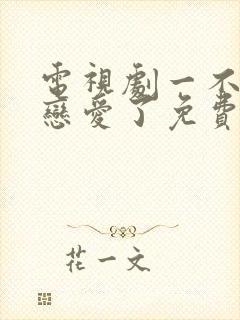 電視劇一不
戀愛了免費
花一文